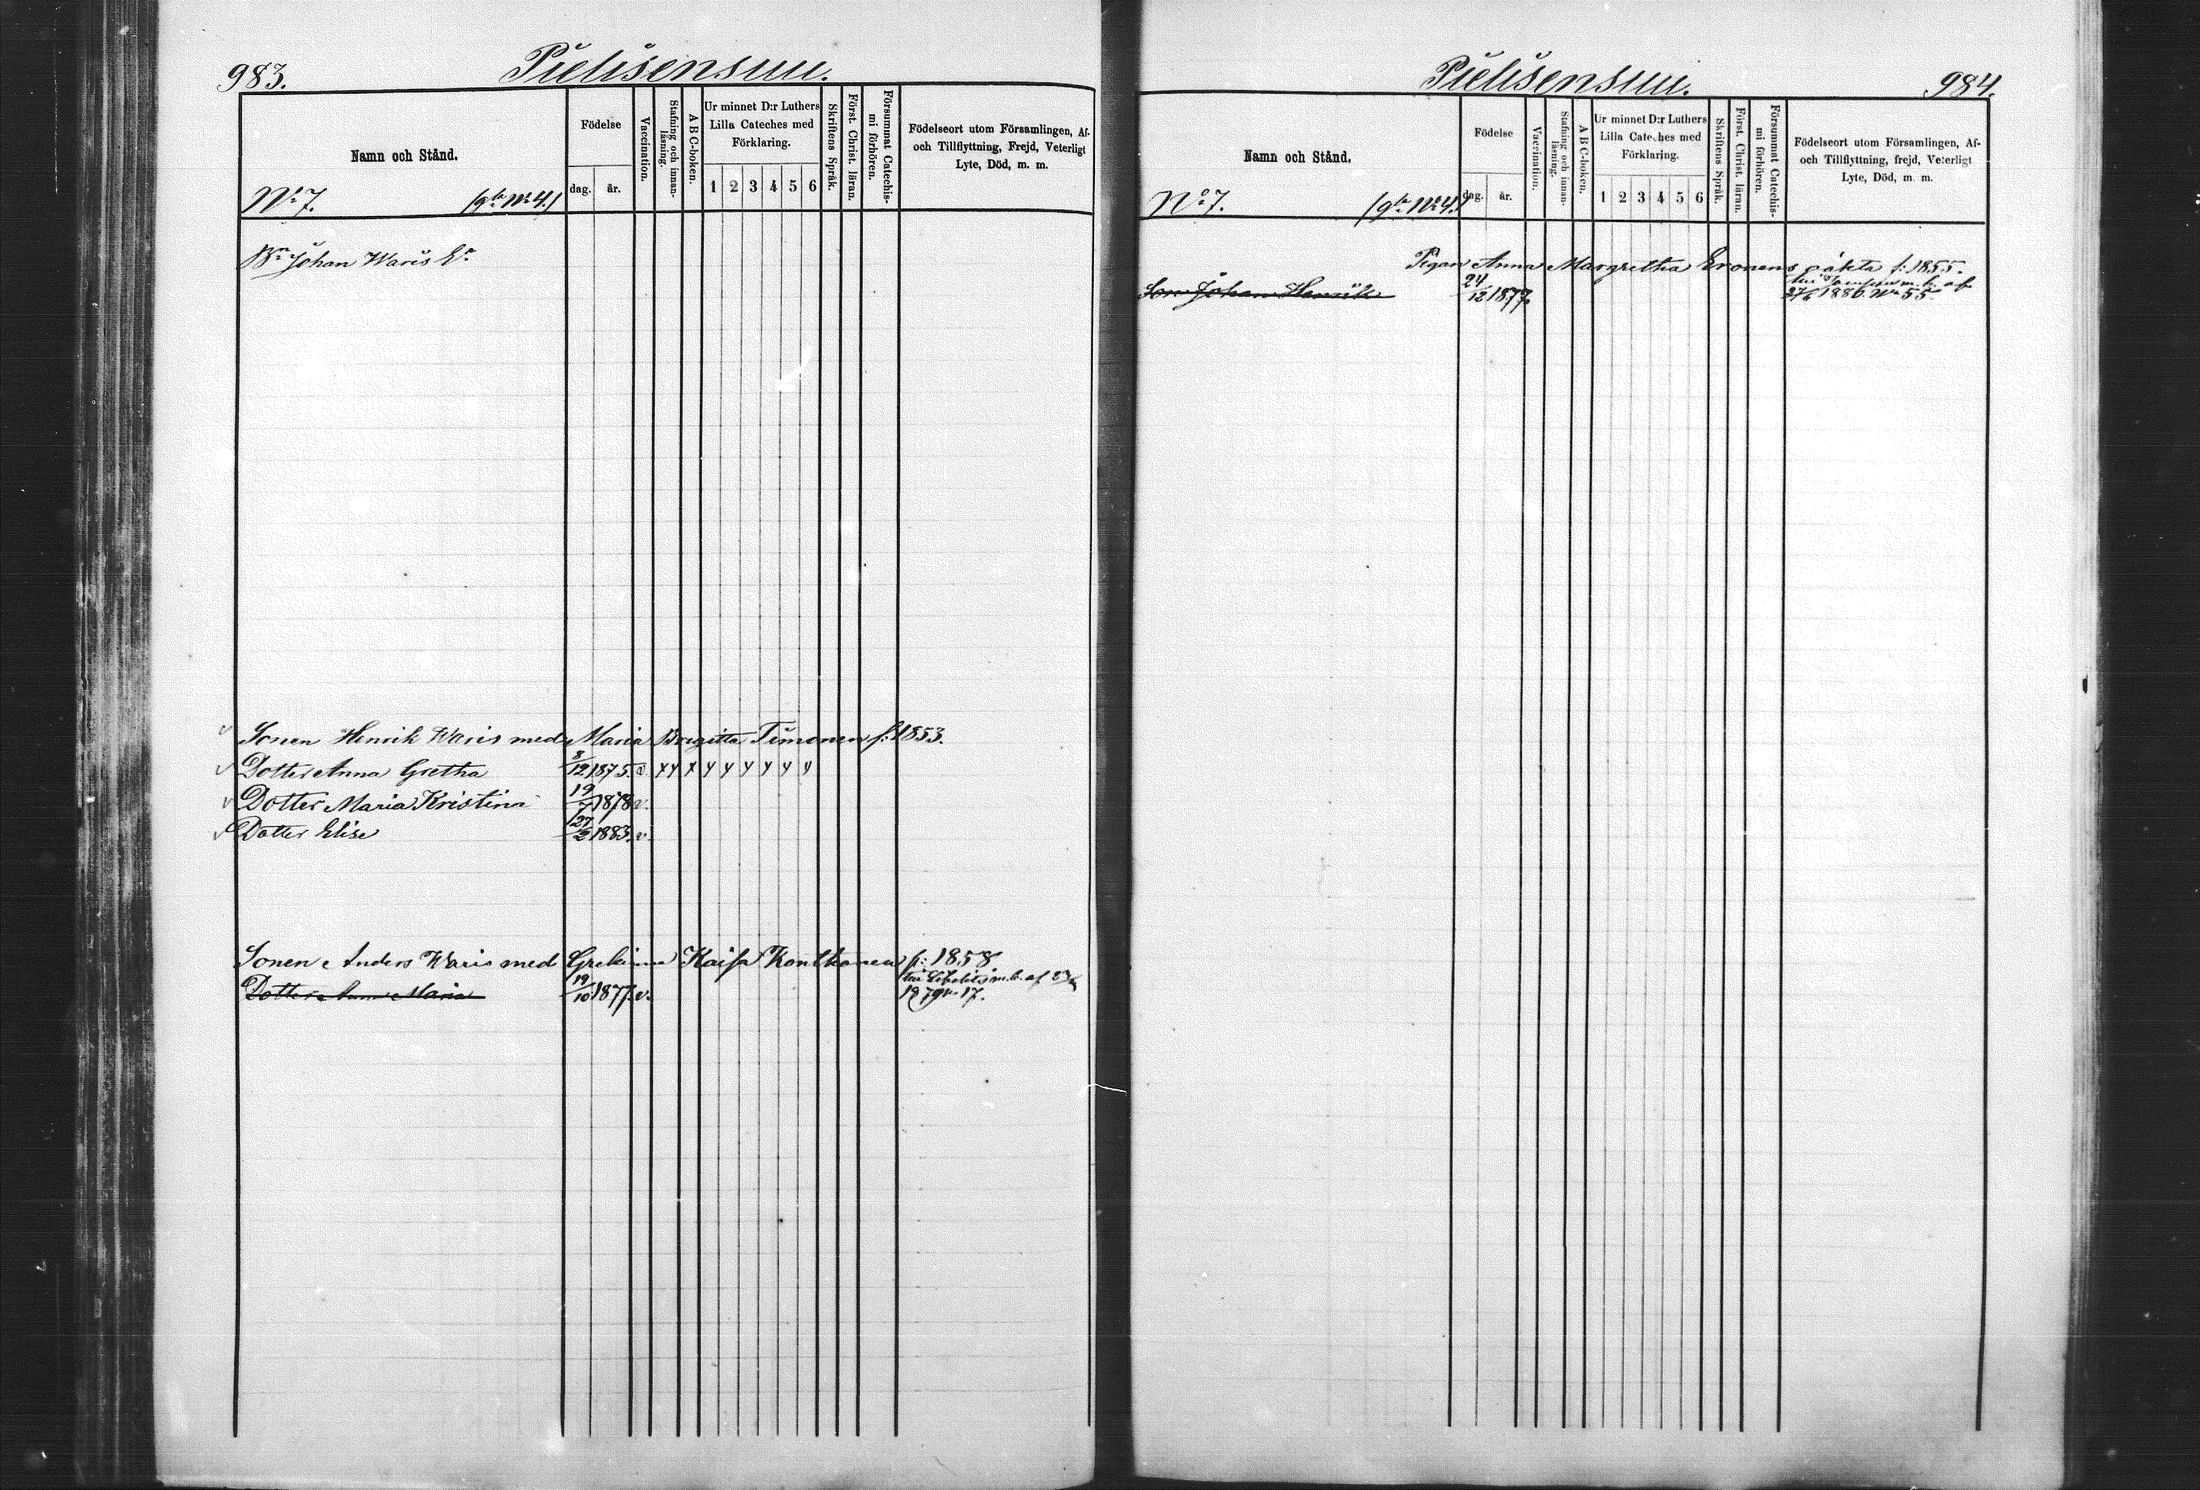 983.
Pielisensuu.
Namn och Stånd.
Födelse
dag.
år.
Vaccination.
Stafning och innan-
läsning.
A B C-boken.
Ur minnet D:r Luthers
Lilla Cateches med
Förklaring.
1 2 3 4 5 6
Skriftens Språk.
Först. Christ. läran.
Försummat Catechis-
mi förhören.
Födelseort utom Församlingen, Af-
och Tillflyttning, Frejd, Veterligt
Lyte, Död, m. m.
No 7.
Johan Waris
Sonen Henrik Waris med Maria Brigitta Timonen f: 1853.
Dotter Anna Gretha 3/12 1875. v.
Dotter Maria Kristina 19/7 1878 v.
Dotter Elise 1883. v.
Sonen Anders Waris med Kaisa Kontkanen f: 1858
Dotter Anna Maria 19/10 1877. v.
Pielisensuu.
984.
Namn och Stånd.
Födelse
dag.
år.
Vaccination.
Stafning och innan-
läsning.
A B C-boken.
Ur minnet D:r Luthers
Lilla Cateches med
Förklaring.
1 2 3 4 5 6
Skriftens Språk.
Först. Christ. läran.
Försummat Catechis-
mi förhören.
Födelseort utom Församlingen, Af-
och Tillflyttning, frejd, Veterligt
Lyte, Död, m. m.
No 7.
Pigan Anna Margretha Eronens oäkta f: 1855.
Son Johan Henrik 24/12 1877